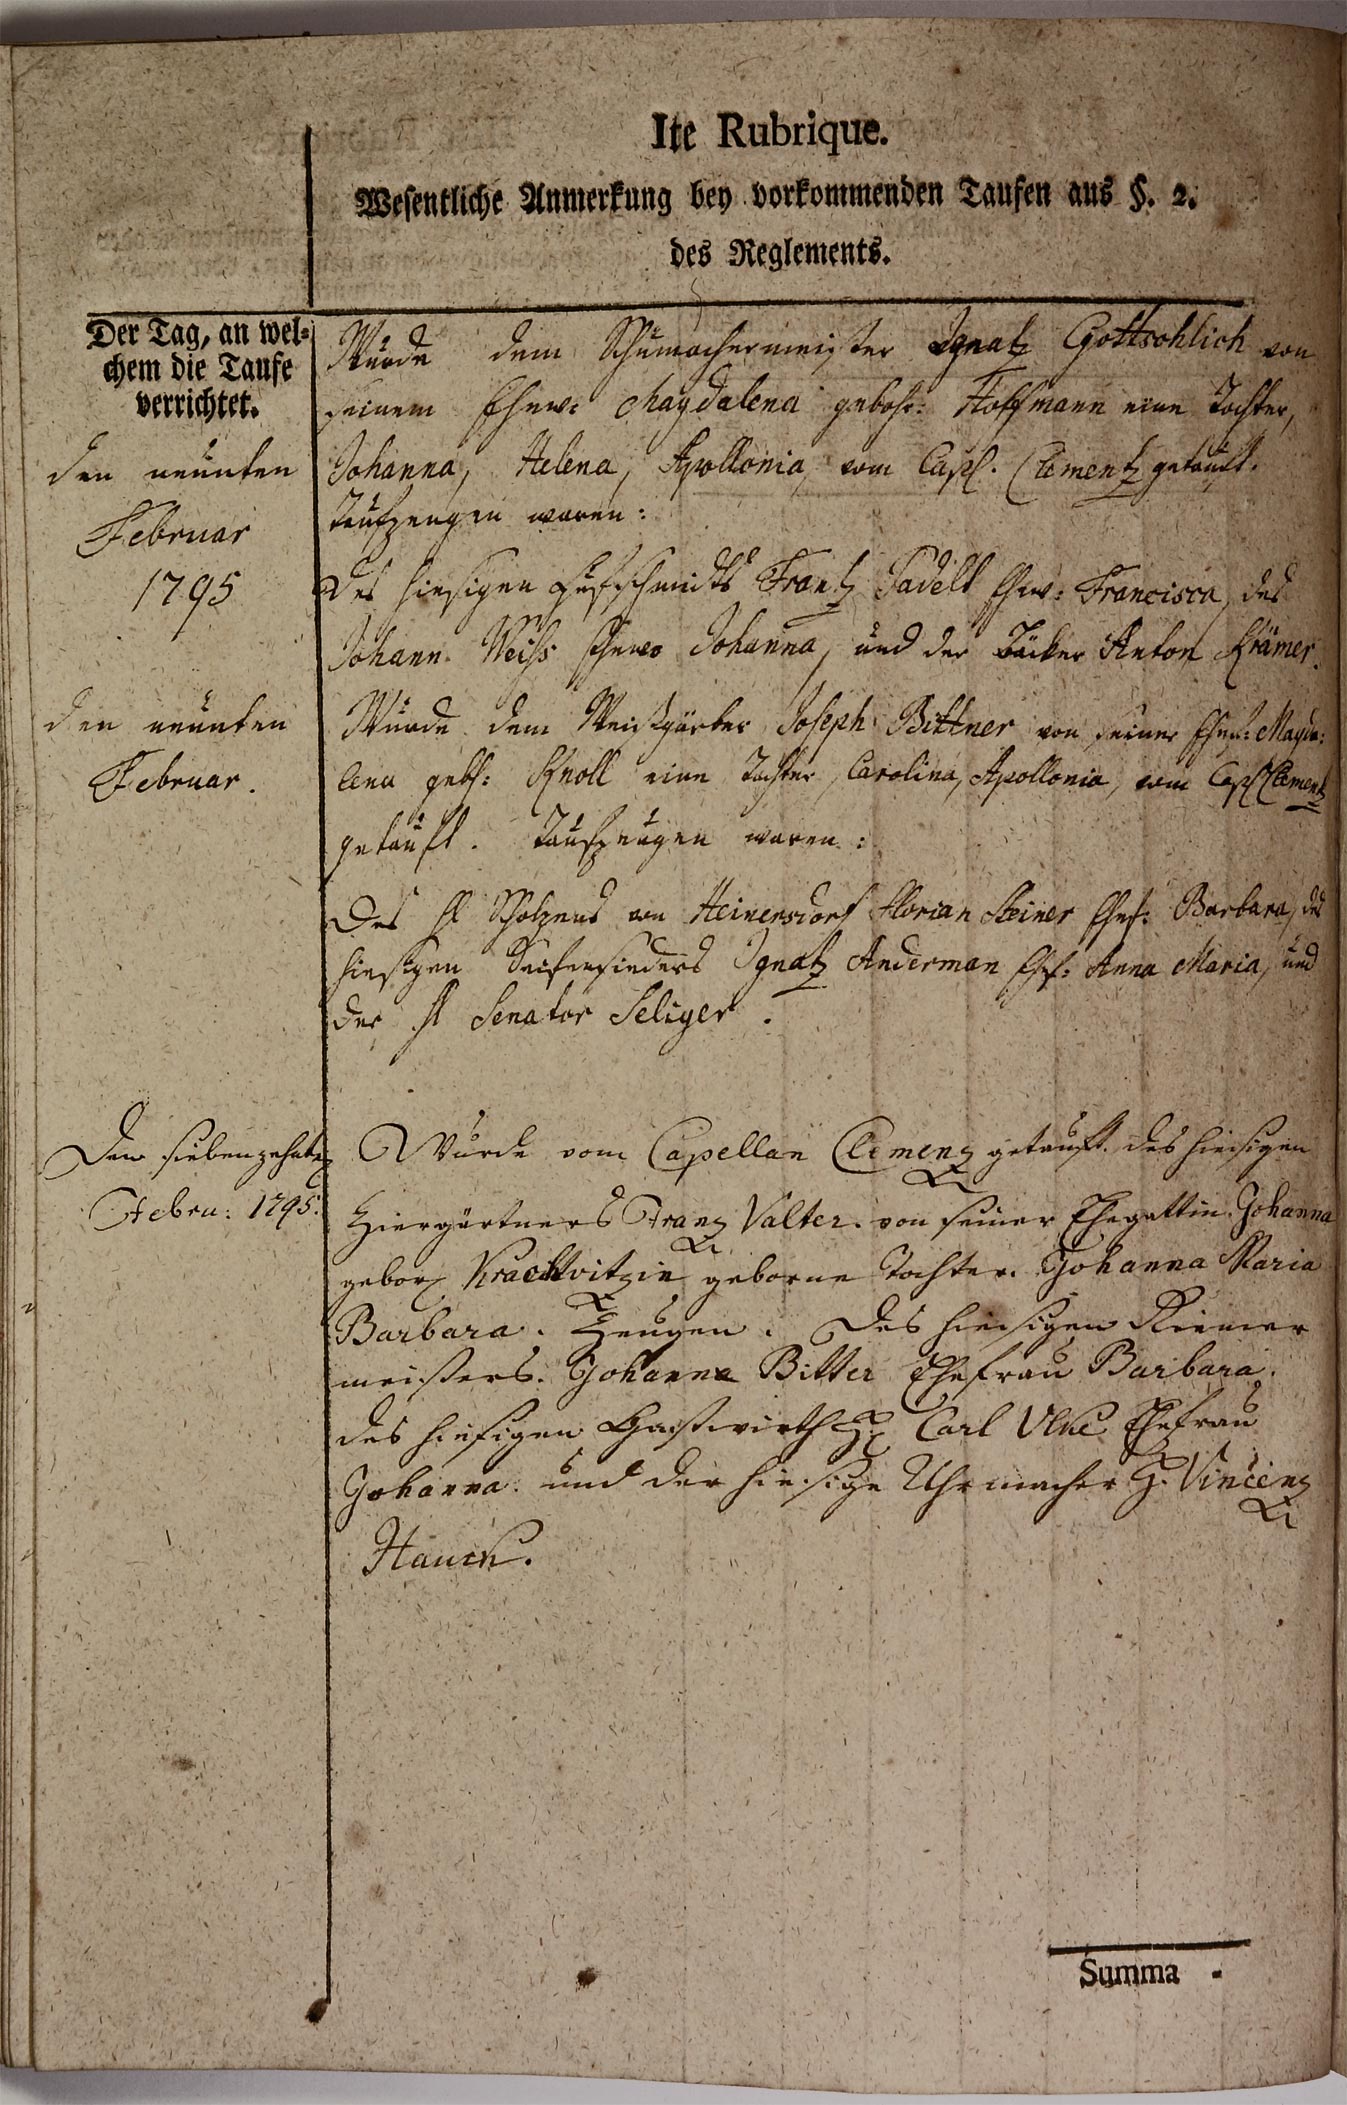 Ite Rubrique.
Wesentliche Anmerkung bey vorkommenden Taufen aus §. 2.
des Reglements.
Der Tag, an wel-
chem die Taufe
verrichtet.
den neunten
Februar
1795
Wurde dem Schumachermeister Ignatz Gottschlich von
seinem Ehew: Magdalena gebohr: Hoffmann eine Tochter,
Johanna, Helena, Apollonia, vom Capl. Clementz getauft.
Taufzeugen waren:
Des hiesigen Hufschmidts Frantz Padelt Ehew: Francisca, des
Johann Weiss Ehewb Johanna, und der Bäcker Anton Krämer.
den neunten
Februar.
Wurde dem Weisgärber Joseph Bittner von seiner Ehef: Magda-
lena gebh: Knoll eine Tochter, Carolina, Apollonia, vom Capl Clementz
getauft. Taufzeugen waren:
Des H Scholzens von Heinersdorf Florian Steiner Ehef: Barbara, des
hiesigen Seifensieders Ignatz Anderman Ehf: Anna Maria, und
der H Senator Seliger.
Den siebenzehnten
Febru: 1795.
Wurde vom Capellan Clemenz getauft. des hiesigen
Ziergärtners Franz Valter. von seiner Ehegattin Johanna
gebor, geborne Tochter. Johanna Maria
Barbara. Zeugen. Des hiesigen Riemer
meisters. Johann Bitter Ehefrau Barbara.
des hiesigen Gastwirth H: Carl Ehefrau
Johanna. und der hiesige Uhrmacher H. Vincenz
Hauck.
Summa -